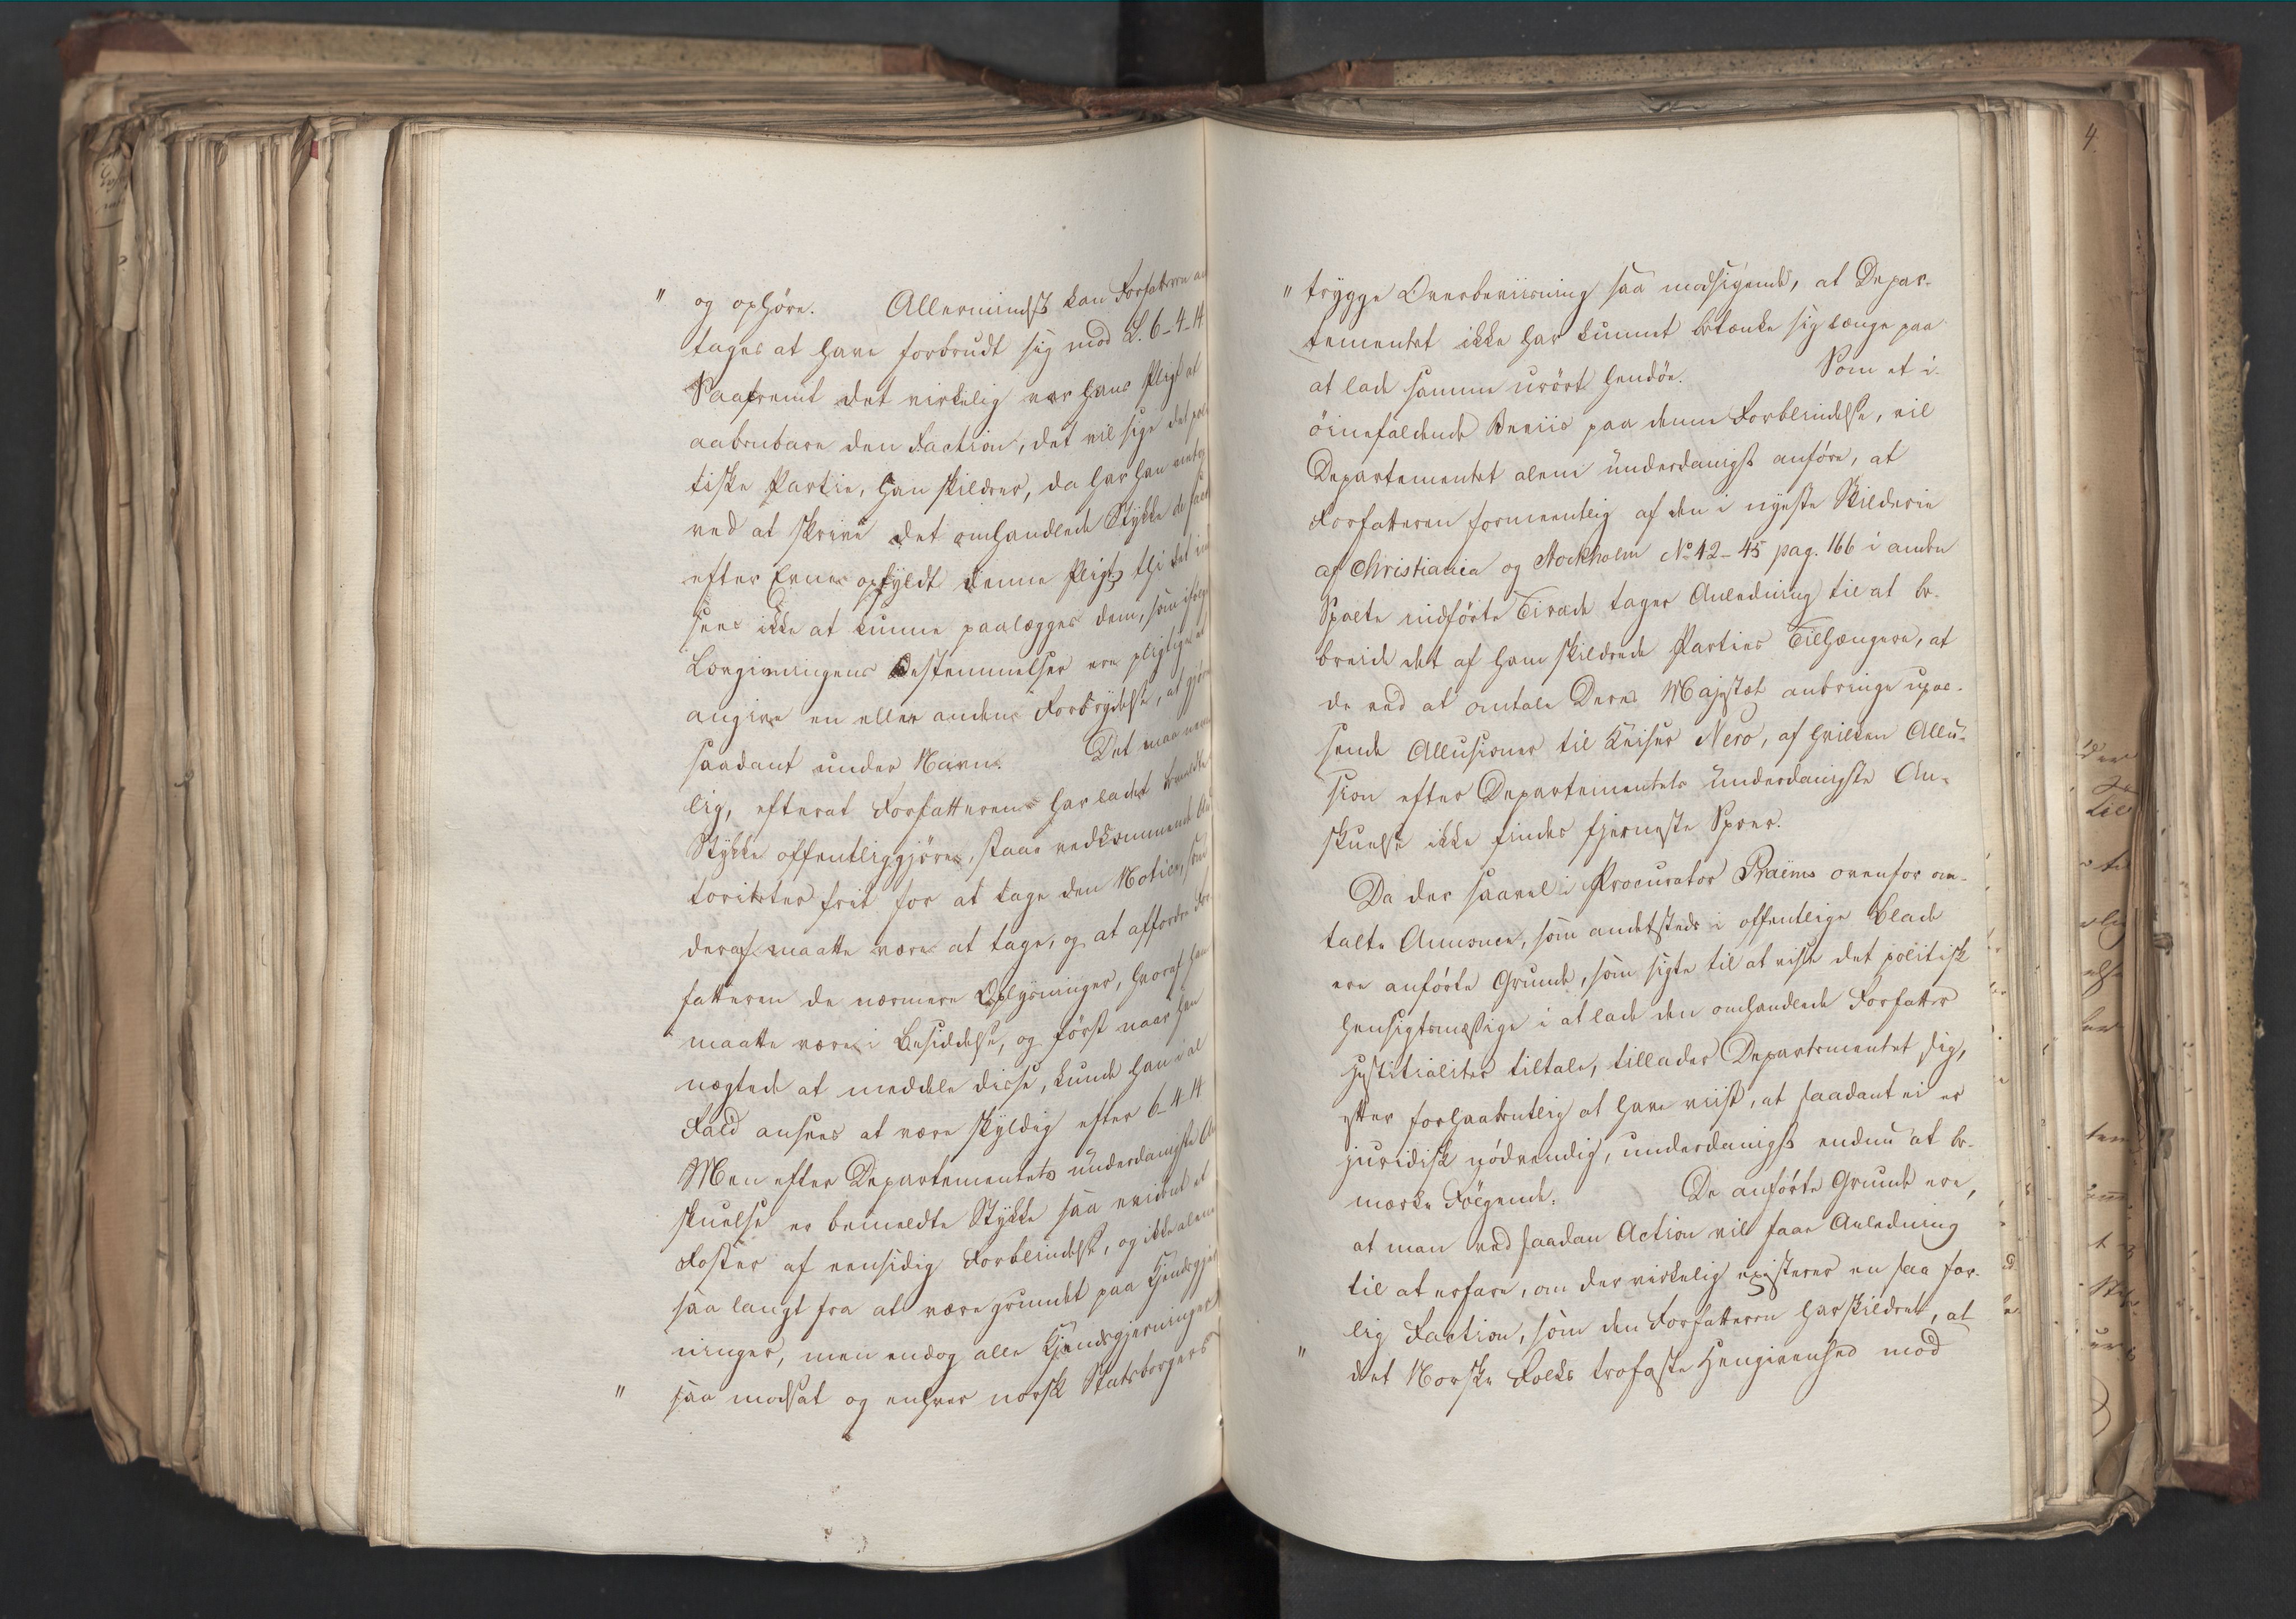 " og ophöre. Allermindst kan Forfatteren an
tages at have forbrudt sig mod L. 6-4-14
Saafremt det virkelig var hans Pligt at
aabenbare den Faction, det vil sige det poli
tiske Partie, han skildrer, da har han netop
ved at skrive det omhandlede Stykke
efter Evne opfyldt denne Pligt, thi det
sees ikke at kunne paalægges dem, som ifölge
Lovgivningens Bestemmelser ere pligtige at
angive en eller anden Forbrydelse, at gjöre
saadant under Navn. Det maa nem
lig, efterat Forfatteren har ladet bemeldte
Stykke offentliggjöre, staae vedkommende Au
toriteter frit for at tage den Notice, som
deraf maatte være at tage, og at affordre For
fatteren de nærmere Oplysninger, hvoraf han
maatte være i Besiddelse, og först naar han
nægtede at meddele disse, kunde han i al
Fald ansees at være skyldig efter 6-4-14
Men efter Departementets underdanigste An
skuelse er bemeldte Stykke saa evident et
Foster af eensidig Forblindelse, og ikke alene
saa langt fra at være grundet paa Kjendsgjer
ninger, men endog alle Kjendsgjerninger
" saa modsat og enhver norsk Statsborgers
4.
" trygge Overbeviisning saa modsigende, at Depar-
tementet ikke har kunnet betænke sig længe paa
at lade samme urört hendöe. Som et i
öinefaldende Beviis paa denne Forblindelse, vil
Departementet alene underdanigst anföre, at
Forfatteren formeentlig af den i nyeste Skilderie
af Christiania og Stockholm No 42-45 pag. 166 i anden
Spalte indförte Tirade tager Anledning til at be-
breide det af ham skildrede Parties Tilhængere, at
de ved at omtale Deres Majestæt anbringe upas-
sende Allusioner til Keiser Nero, af hvilken Allu-
sion efter Departementets underdanigste An-
skuelse ikke findes fjerneste Spoer.
Da der saavel i Procurator Praëms ovenfor om-
talte Annonce, som andetsteds i offentlige Blade
ere anförte Grunde, som sigte til at vise det politisk
hensigtsmæssige i at lade den omhandlede Forfatter
justitialiter tiltale, tillader Departementet sig,
efter forhaabentlig at have viist, at saadant ei er
juridisk nödvendig, underdanigst endnu at be-
mærke Fölgende. De anförte Grunde ere,
at man ved saadan Action vil faae Anledning
til at erfare, om der virkelig existerer en saa far-
lig Faction, som den Forfatteren har skildret, at
" det Norske Folks trofaste Hengivenhed mod